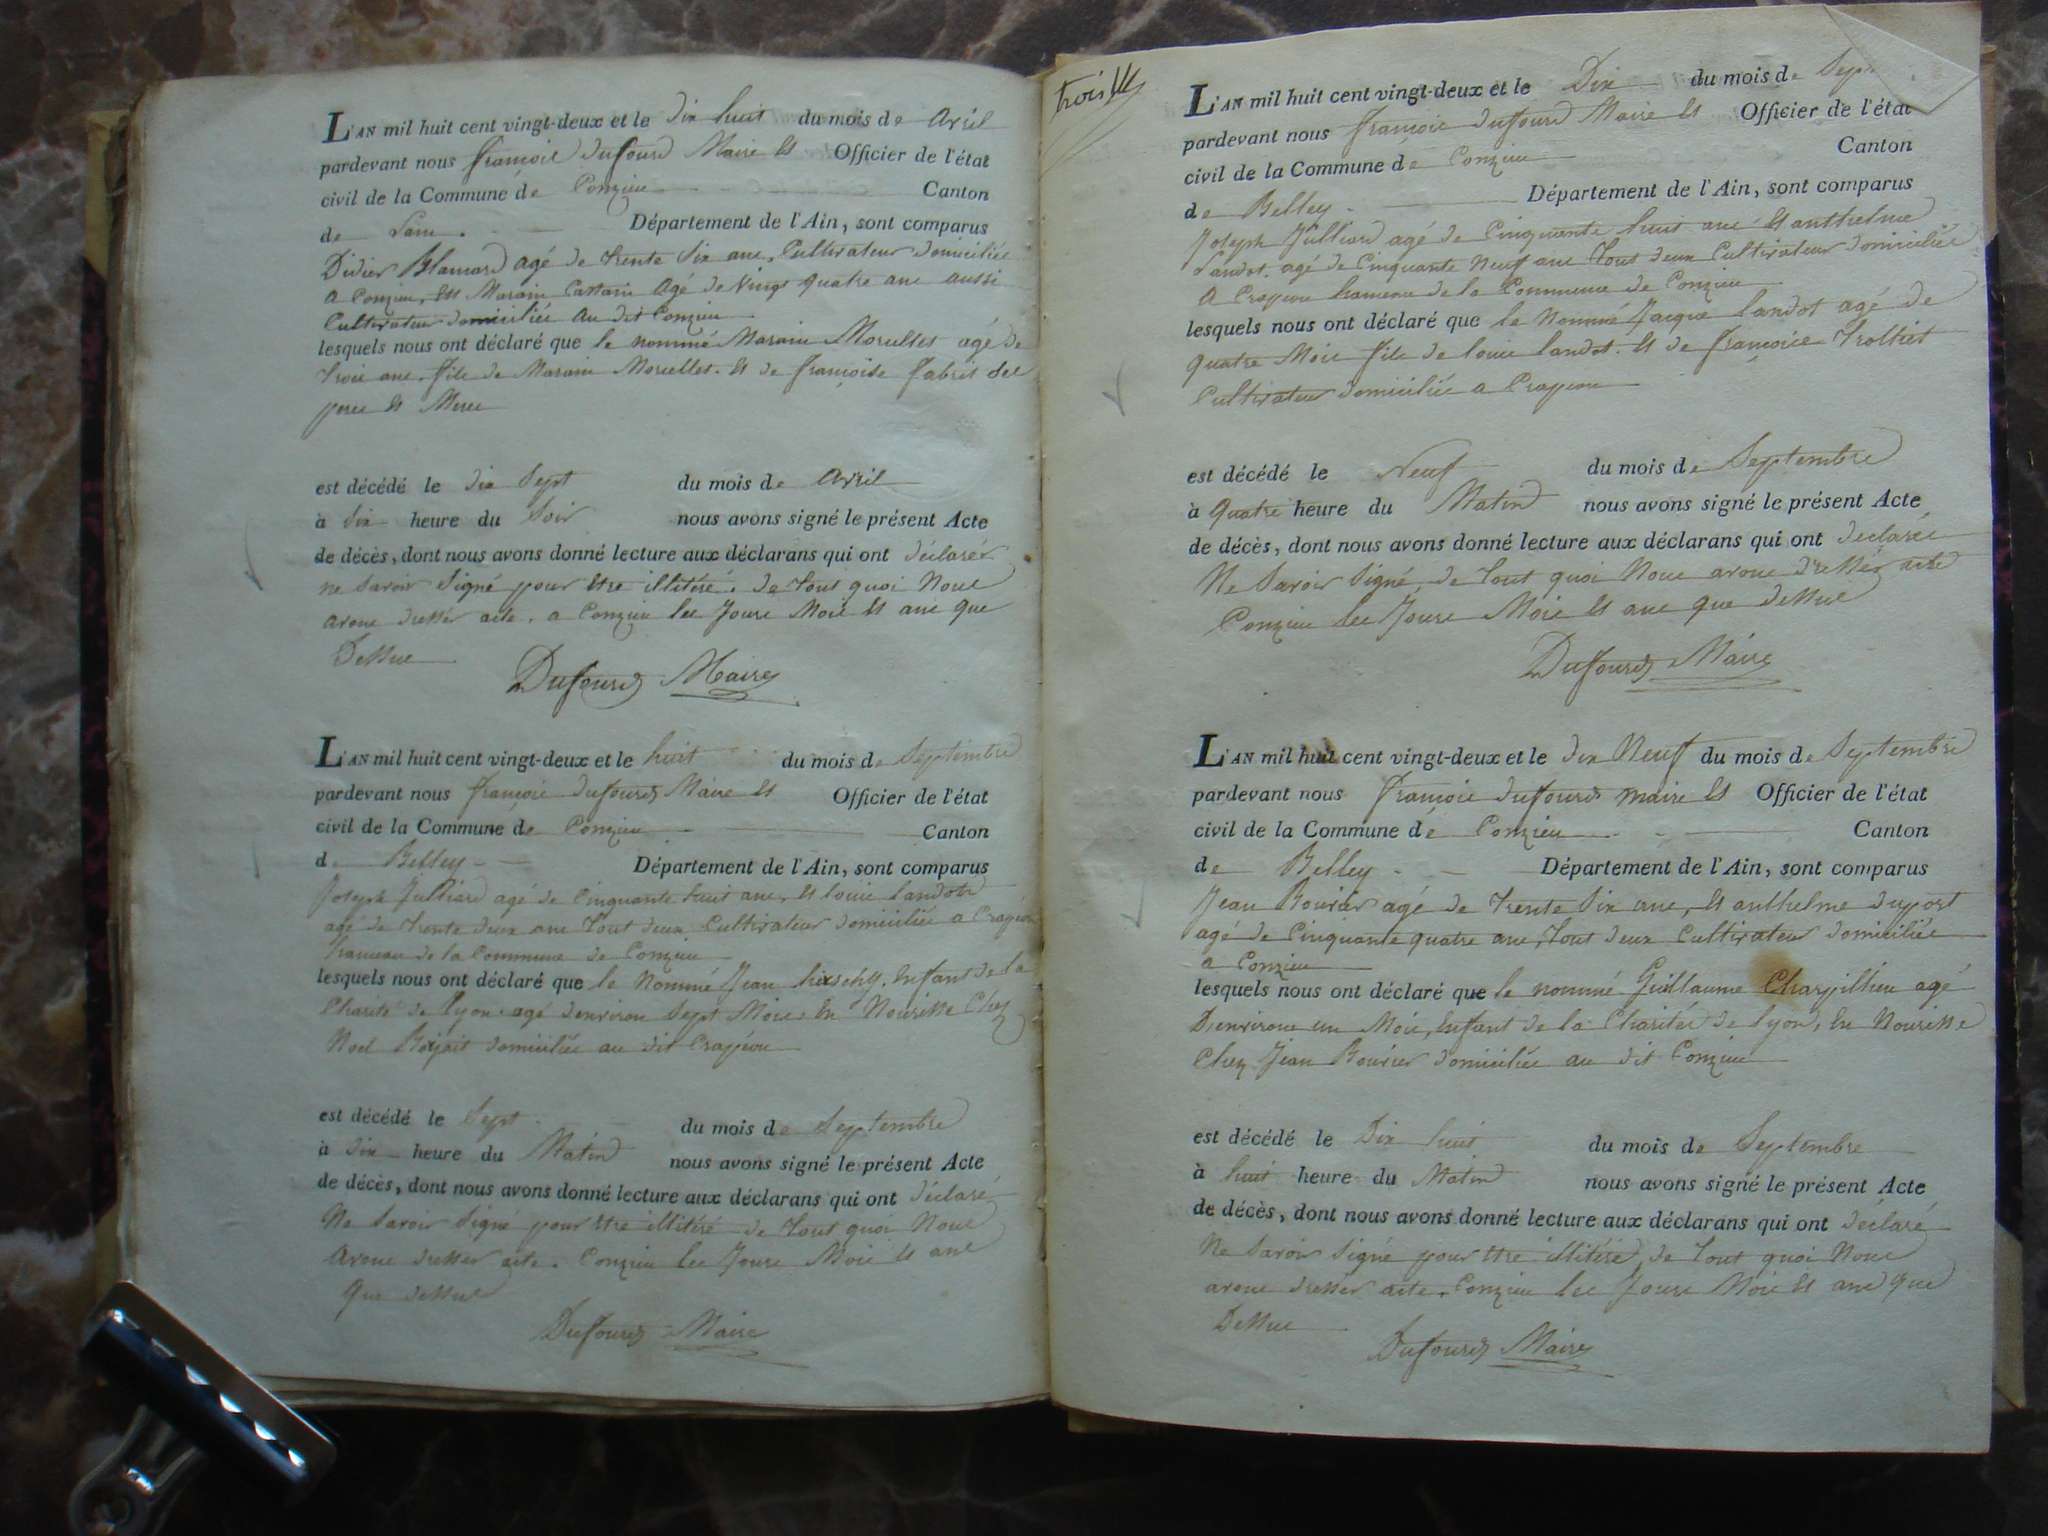 L'AN mil huit cent vingt-deux et le dix huit du mois de avril
pardevant nous françois dufourd Maire et Officier de l'état
civil de la Commune de Conzieu Canton
de Département de l'Ain, sont comparus
Didier Blanard agé de trente six ans, Cultivateur domiciliée
a Conzieu, et Marain agé de vingt quatre ans aussi
Cultivateur domiciliée au dit Conzieu
lesquels nous ont déclaré que le nommé Marain Morellet agé de
trois ans, fils de Marain Morellet et de françoise fabrit ses
peres et Mere
est décédé le dix sept du mois de avril
à six heure du soir nous avons signé le présent Acte
de décès, dont nous avons donné lecture aux déclarans qui ont déclarér
ne savoir signé pour etre illitéré. de tout quoi nous
avons dressér acte. a Conzieu les jours Mois et ans que
dessus
Dufourd Maire
L'AN mil huit cent vingt-deux et le huit du mois de Septembre
pardevant nous françois dufourd Maire et Officier de l'état
civil de la Commune de Conzieu Canton
de Belley Département de l'Ain, sont comparus
Joseph Julliard agé de Cinquante huit ans, et louis landot
agé de trente deux ans tout deux Cultivateur domiciliée a Crapéou
hameau de la Commune de Conzieu
lesquels nous ont déclaré que le Nommé Jean enfant de la
Charité de lyon agé denviron Sept Mois En Nourisse Chez
Noel domiciliée au dit Crapéou
est décédé le Sept du mois de Septembre
à dix heure du Matin nous avons signé le présent Acte
de décès, dont nous avons donné lecture aux déclarans qui ont déclaré
Ne savoir Signé pour etre illitéré de tout quoi Nous
avons dresser acte. Conzieu les Jours Mois et ans
que dessus
Dufourd Maire
trois
L'AN mil huit cent vingt-deux et le Dix du mois de Sep
pardevant nous françois dufourd Maire et Officier de l'état
civil de la Commune de Conzieu Canton
de Belley Département de l'Ain, sont comparus
Joseph Julliard agé de Cinquante huit ans et anthelme
Landot agé de Cinquante Neuf ans tout deux Cultivateur domiciliée
a Crapéou hameau de la Commune de Conzieu
lesquels nous ont déclaré que le Nommé Jacque landot agé de
quatre Mois fils de louis landot et de françoise Trolliet
Cultivateur domiciliée a Crapéou
est décédé le Neuf du mois de Septembre
à quatre heure du Matin nous avons signé le présent Acte
de décès, dont nous avons donné lecture aux déclarans qui ont déclarée
Ne Savoir Signé, de tout quoi Nous avons dressér acte
Conzieu les Jours Mois et ans que dessus
Dufourd Maire
L'AN mil huit cent vingt-deux et le dix Neuf du mois de Septembre
pardevant nous françois dufourd maire et Officier de l'état
civil de la Commune de Conzieu Canton
de Belley Département de l'Ain, sont comparus
Jean Bourier agé de trente six ans, et anthelme dupport
agé de Cinquante quatre ans, tout deux Cultivateur domiciliée
a Conzieu
lesquels nous ont déclaré que le nommé Guillaume Charpillieu agé
Denvirons un Mois, Enfant de la Charitée de lyon, En Nourisse
Chez Jean Bourier domiciliée au dit Conzieu
est décédé le Dix huit du mois de Septembre
à huit heure du Matin nous avons signé le présent Acte
de décès, dont nous avons donné lecture aux déclarans qui ont déclaré
Ne savoir Signé pour etre illitéré, de tout quoi Nous
avons dresser acte. Conzieu les Jours Mois et ans que
Dessus
Dufourd Maire